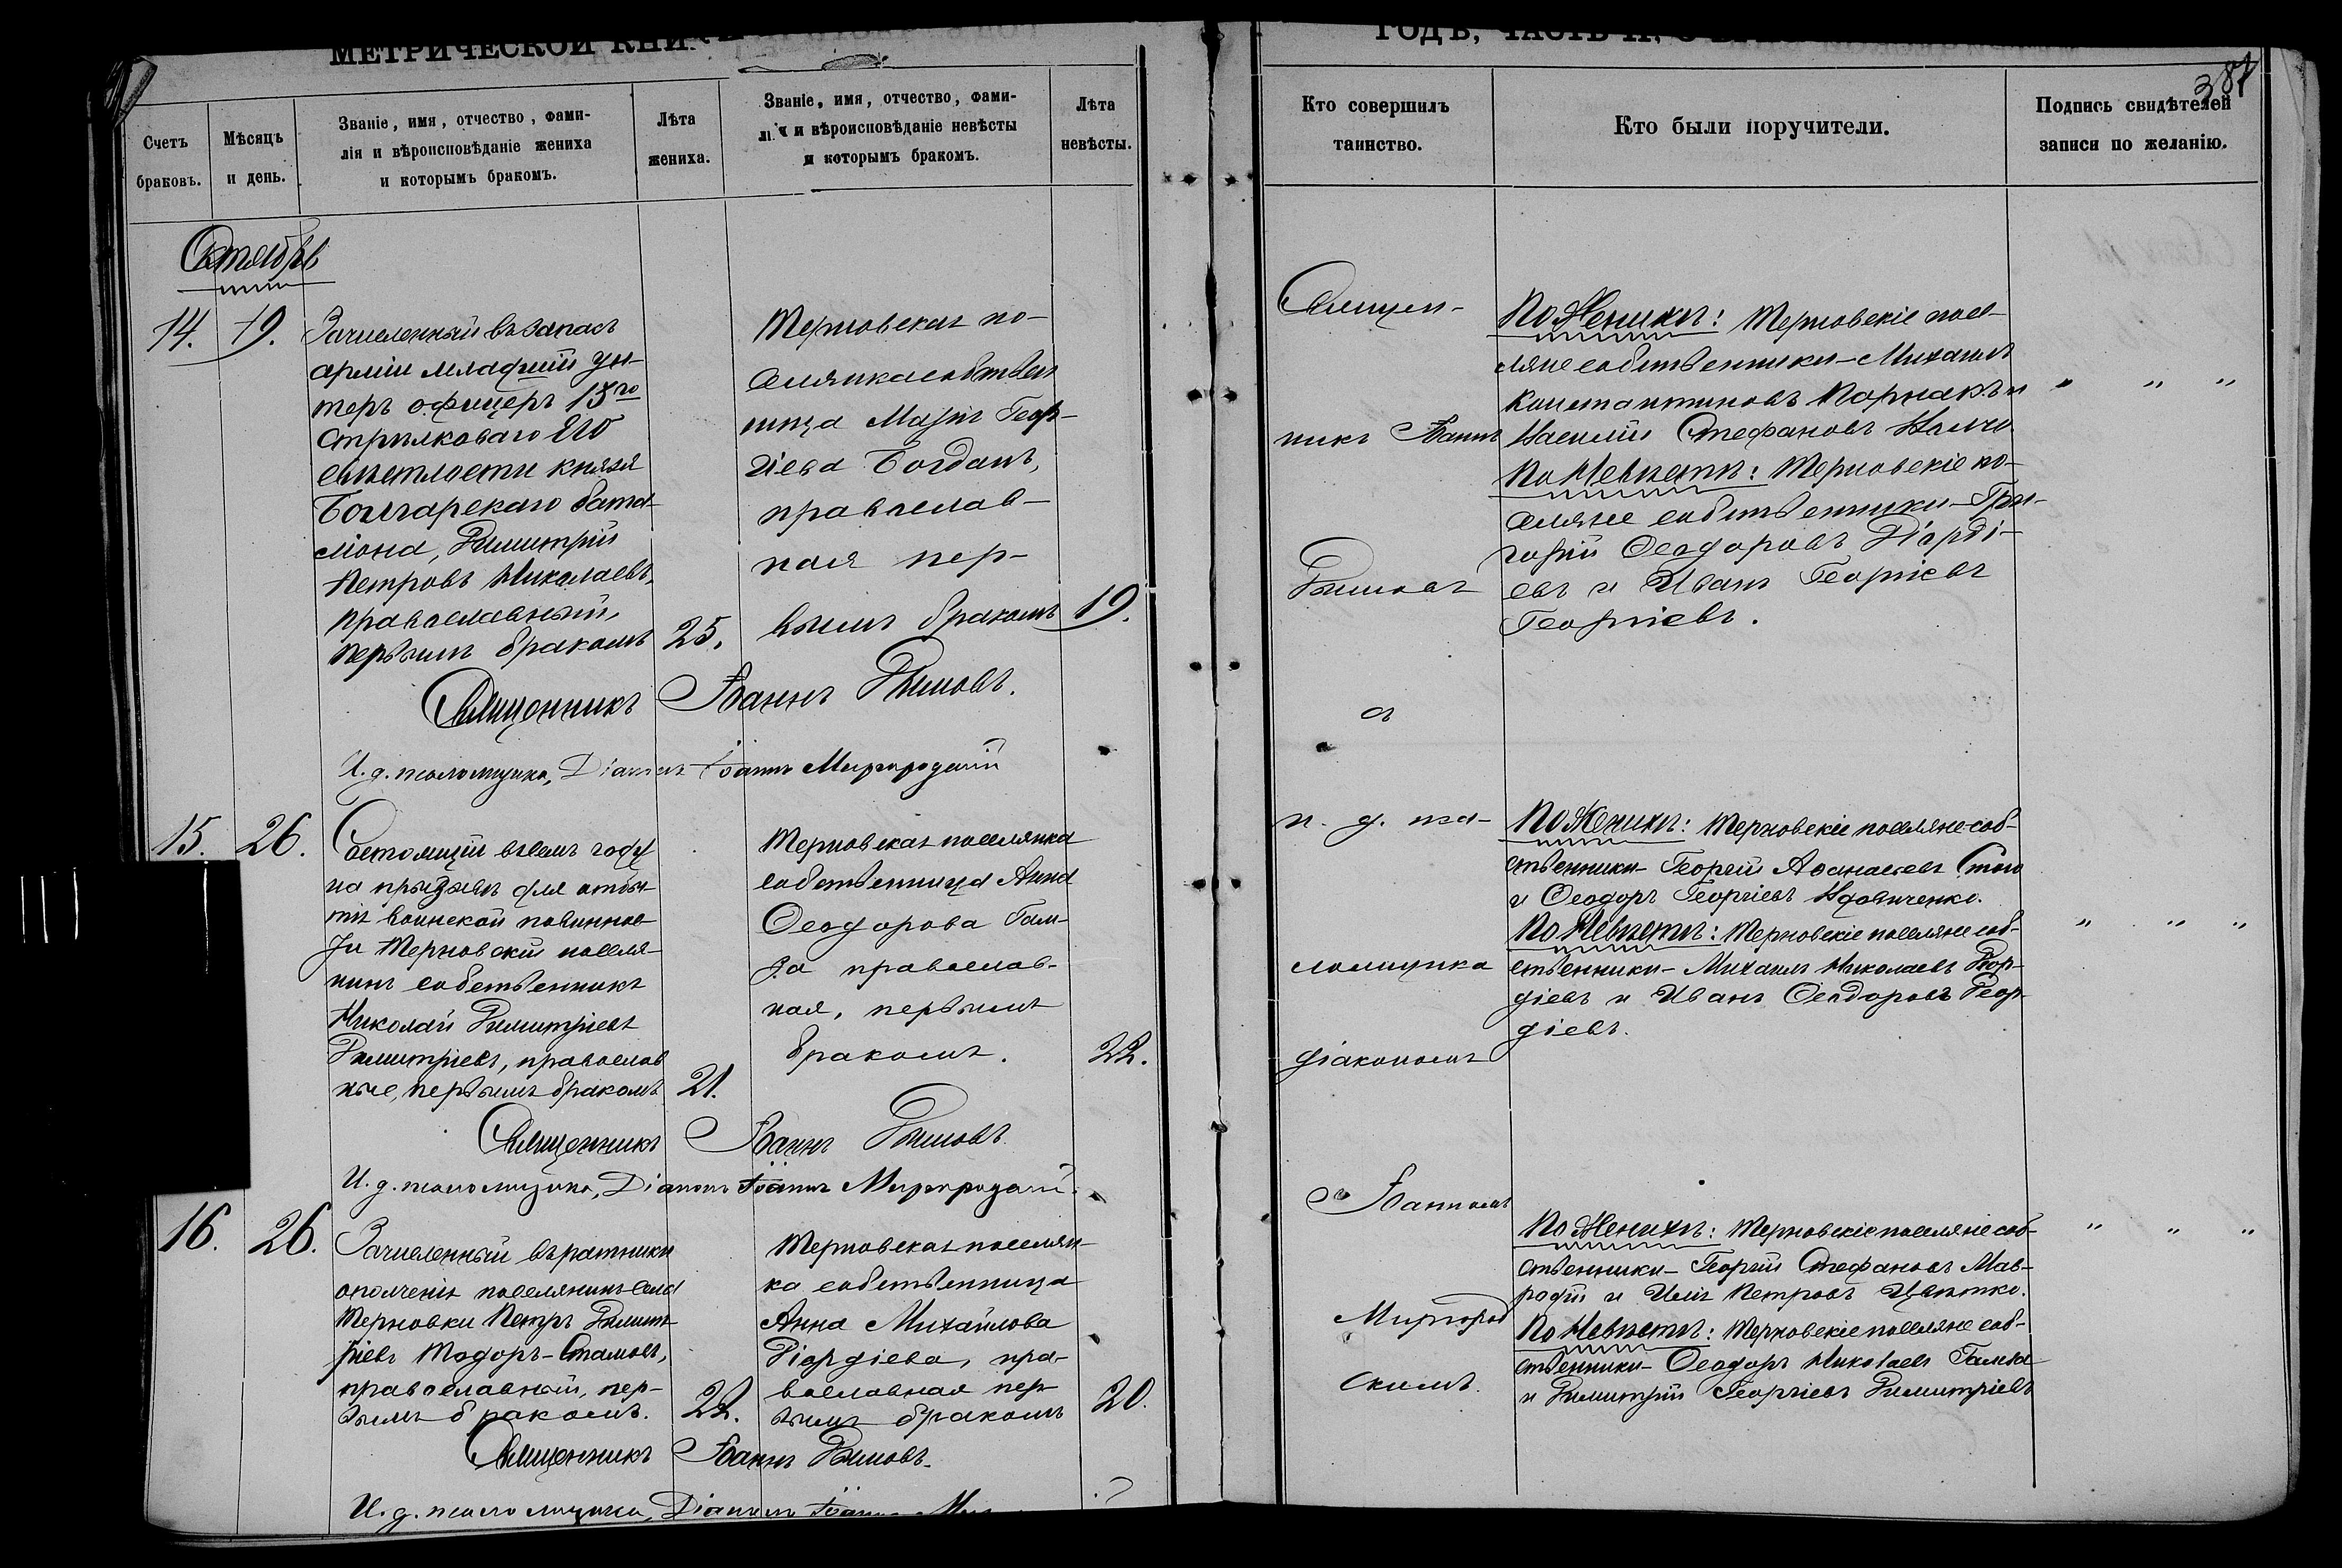 МЕТРИЧЕСКОЙ КНИ
Счетъ
браковъ.
Мѣсяцъ
и день.
Званіе, имя, отчество, фами-
лія и вѣроисповѣданіе жениха
и которымъ бракомъ.
Лѣта
жениха.
Званіе, имя, отчество, фами-
лія и вѣроисповѣданіе невѣсты
и которымъ бракомъ.
Лѣта
невѣсты.
Октябрь
14.
19.
Зачисленный въ запасъ
арміи младшій ун-
теръ офицеръ 13го
Стрѣлковаго Его
свѣтлости князя
Болгарскаго бата-
ліона, Димитрій
Петровъ Николаевъ,
православный,
первымъ бракомъ
25.
Терновская по-
селянка собствен
ница Марія Геор-
гіева Богданъ,
православ-
ная пер-
вымъ бракомъ
19.
Священникъ Іоаннъ Димовъ.
И. д. псаломщика, Діаконъ Іоаннъ Миргородскій
15.
26.
Состоящій въ семъ году
на призывѣ для отбы-
тія воинской повиннос-
ти Терновскій поселя-
нинъ собственникъ
Николай Димитріевъ
Димитріевъ, православ
ные, первымъ бракомъ
21.
Терновская поселянка
собственница Анна
Ѳеодорова
православ-
ная, первымъ
бракомъ.
22.
Священникъ Іоаннъ Димовъ.
И. д. псаломщика, Діаконъ Іоаннъ Миргородскій.
16.
26.
Зачисленный въ ратники
ополченія поселянинъ села
Терновки Петръ Димит-
ріевъ Тодоръ-Стамовъ,
православный, пер-
вымъ бракомъ.
22.
Терновская поселян-
ка собственница
Анна Михайлова
Гіордіева, пра-
вославная пер
вымъ бракомъ
20.
Священникъ Іоаннъ Димовъ.
И. д. псаломщика, Діаконъ Іоаннъ
ГОДЪ, ЧАСТЬ II,
387
Кто совершилъ
таинство.
Кто были поручители.
Подпись свидѣтелей
записи по желанію.
Священ-
никъ Іоаннъ
Димовъ
съ
и. д. пса-
ломщика
діакономъ
Іоанномъ
Миргород
скимъ.
По Женихѣ: Терновскіе посе-
ляне собственники - Михаилъ
Константиновъ Парнакъ и
Василій Стефановъ
По Невѣстѣ: Терновскіе по-
селяне собственники - Гри-
горій Ѳеодоровъ Гіорді-
евъ и Иванъ Георгіевъ
Георгіевъ.
" " "
По Женихѣ: Терновскіе поселяне соб-
ственники - Георгій Аѳанасіевъ Стою
и Ѳеодоръ Георгіевъ Вдовиченко.
По Невѣстѣ: Терновскіе поселяне соб-
ственники - Михаилъ Николаевъ Гіор-
діевъ и Иванъ Ѳеодоровъ Гіор
діевъ.
" " "
По Женихѣ: Терновскіе поселяне соб-
ственники - Георгій Стефановъ Мав-
родій и Илія Петровъ Цвѣтко.
По Невѣстѣ: Терновскіе поселяне соб-
ственники - Ѳеодоръ Николаевъ
и Димитрій Георгіевъ Димитріевъ
" " "